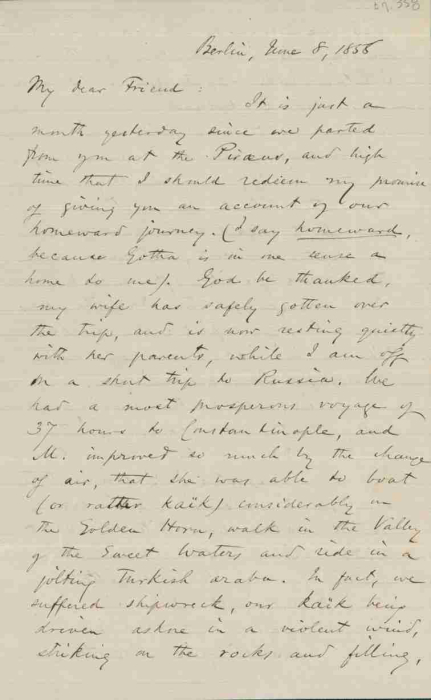 Berlin, June 8, 1858
My dear Friend:
It is just a
month yesterday since we parted
from you at the Piræus, and high
time that I should redeem my promise
of giving you an account of our
homeward journey. (I say homeward,
because Gotha is in one sense a
home to me). God be thanked,
my wife has safely gotten over
the trip, and is now resting quietly
with her parents, while I am off
on a short trip to Russia. We
had a most prosperous voyage of
37 hours to Constantinople, and
M. improved so much by the change
of air, that she was able to boat
(or rather kaïk) considerably on
the Golden Horn, walk in the Valley
of the Sweet Waters and ride in a
jolting Turkish araba. In fact, we
suffered shipwreck, our kaïk being
driven ashore in a violent wind,
striking on the rocks and filling,